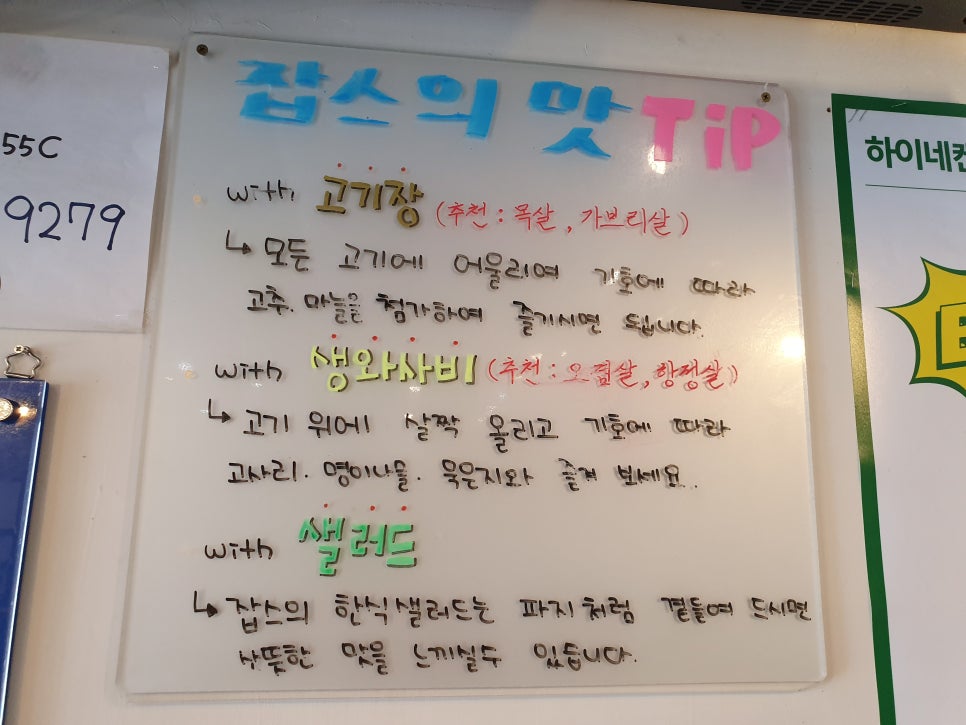 55C
9279
잡스의 맛 TiP
with 고기장 (추천 : 목살, 가브리살)
↳ 모든 고기에 어울리며 기호에 따라
고추. 마늘을 첨가하여 즐기시면 됩니다.
with 생와사비 (추천 : 오겹살, 항정살)
↳ 고기 위에 살짝 올리고 기호에 따라
고사리. 명이나물. 묵은지와 즐겨 보세요.
with 샐러드
↳ 잡스의 한식샐러드는 파지처럼 곁들여 드시면
산뜻한 맛을 느끼실수 있습니다.
하이네켄